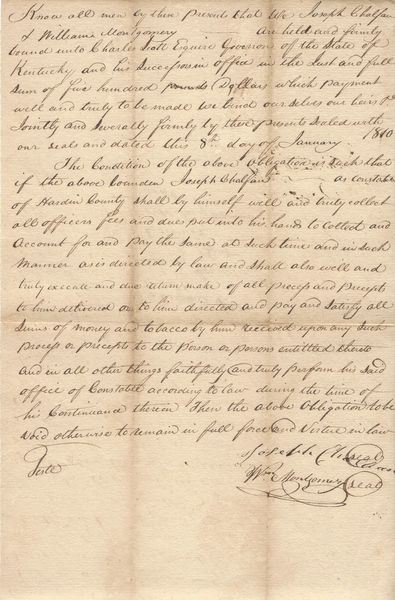 Know all men by these Presents that We Joseph Chalfan
& William Montgomery are held and firmly
bound unto Charles Scott Esquire Governor of the State of
Kentucky and his Successors in office in the Just and full
Sum of five hundred pounds Dollars which payment
well and truly to be made we bind our selves our heirs &c
Jointly and Severally firmly by these presents Sealed with
our seals and dated this 8th day of January 1810
The Condition of the above Obligation is Such that
if the above bounden Joseph Chalfan as constable
of Hardin County shall by himself well and truly collect
all officers fees and dues put into his hands to Collect and
Account for and Pay the Same at Such time and in Such
Manner as is directed by law and Shall also well and
truly execute and due return make of all process and Precepts
to him delivered or to him directed and pay and Satisfy all
Sums of money and tobacco by him received upon any Such
Process or precepts to the Person or persons entitled thereto
and in all other things faithfully and truly Perform his Said
office of Constable according to law during the time of
his Continuance therein Then the above Obligation to be
Void otherwise to remain in full force and Virtue in law
Teste
Joseph seal
Wm Montgomery seal